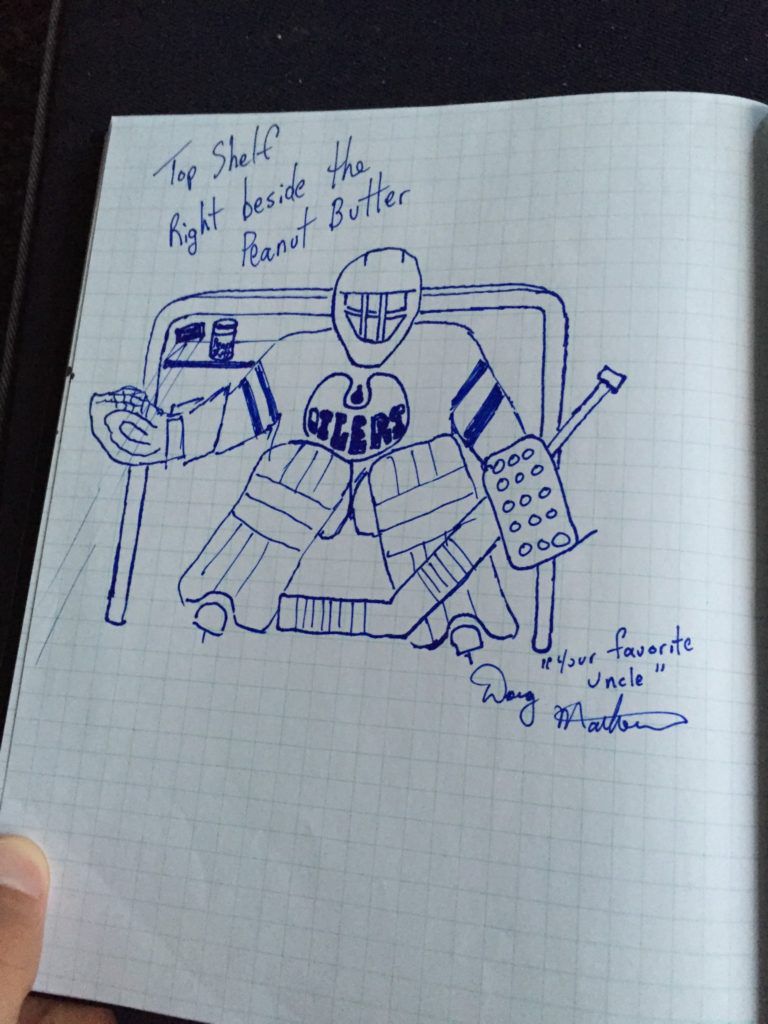 Top Shelf
Right beside the
Peanut Butter
OILERS
"Your favorite
uncle"
Doug